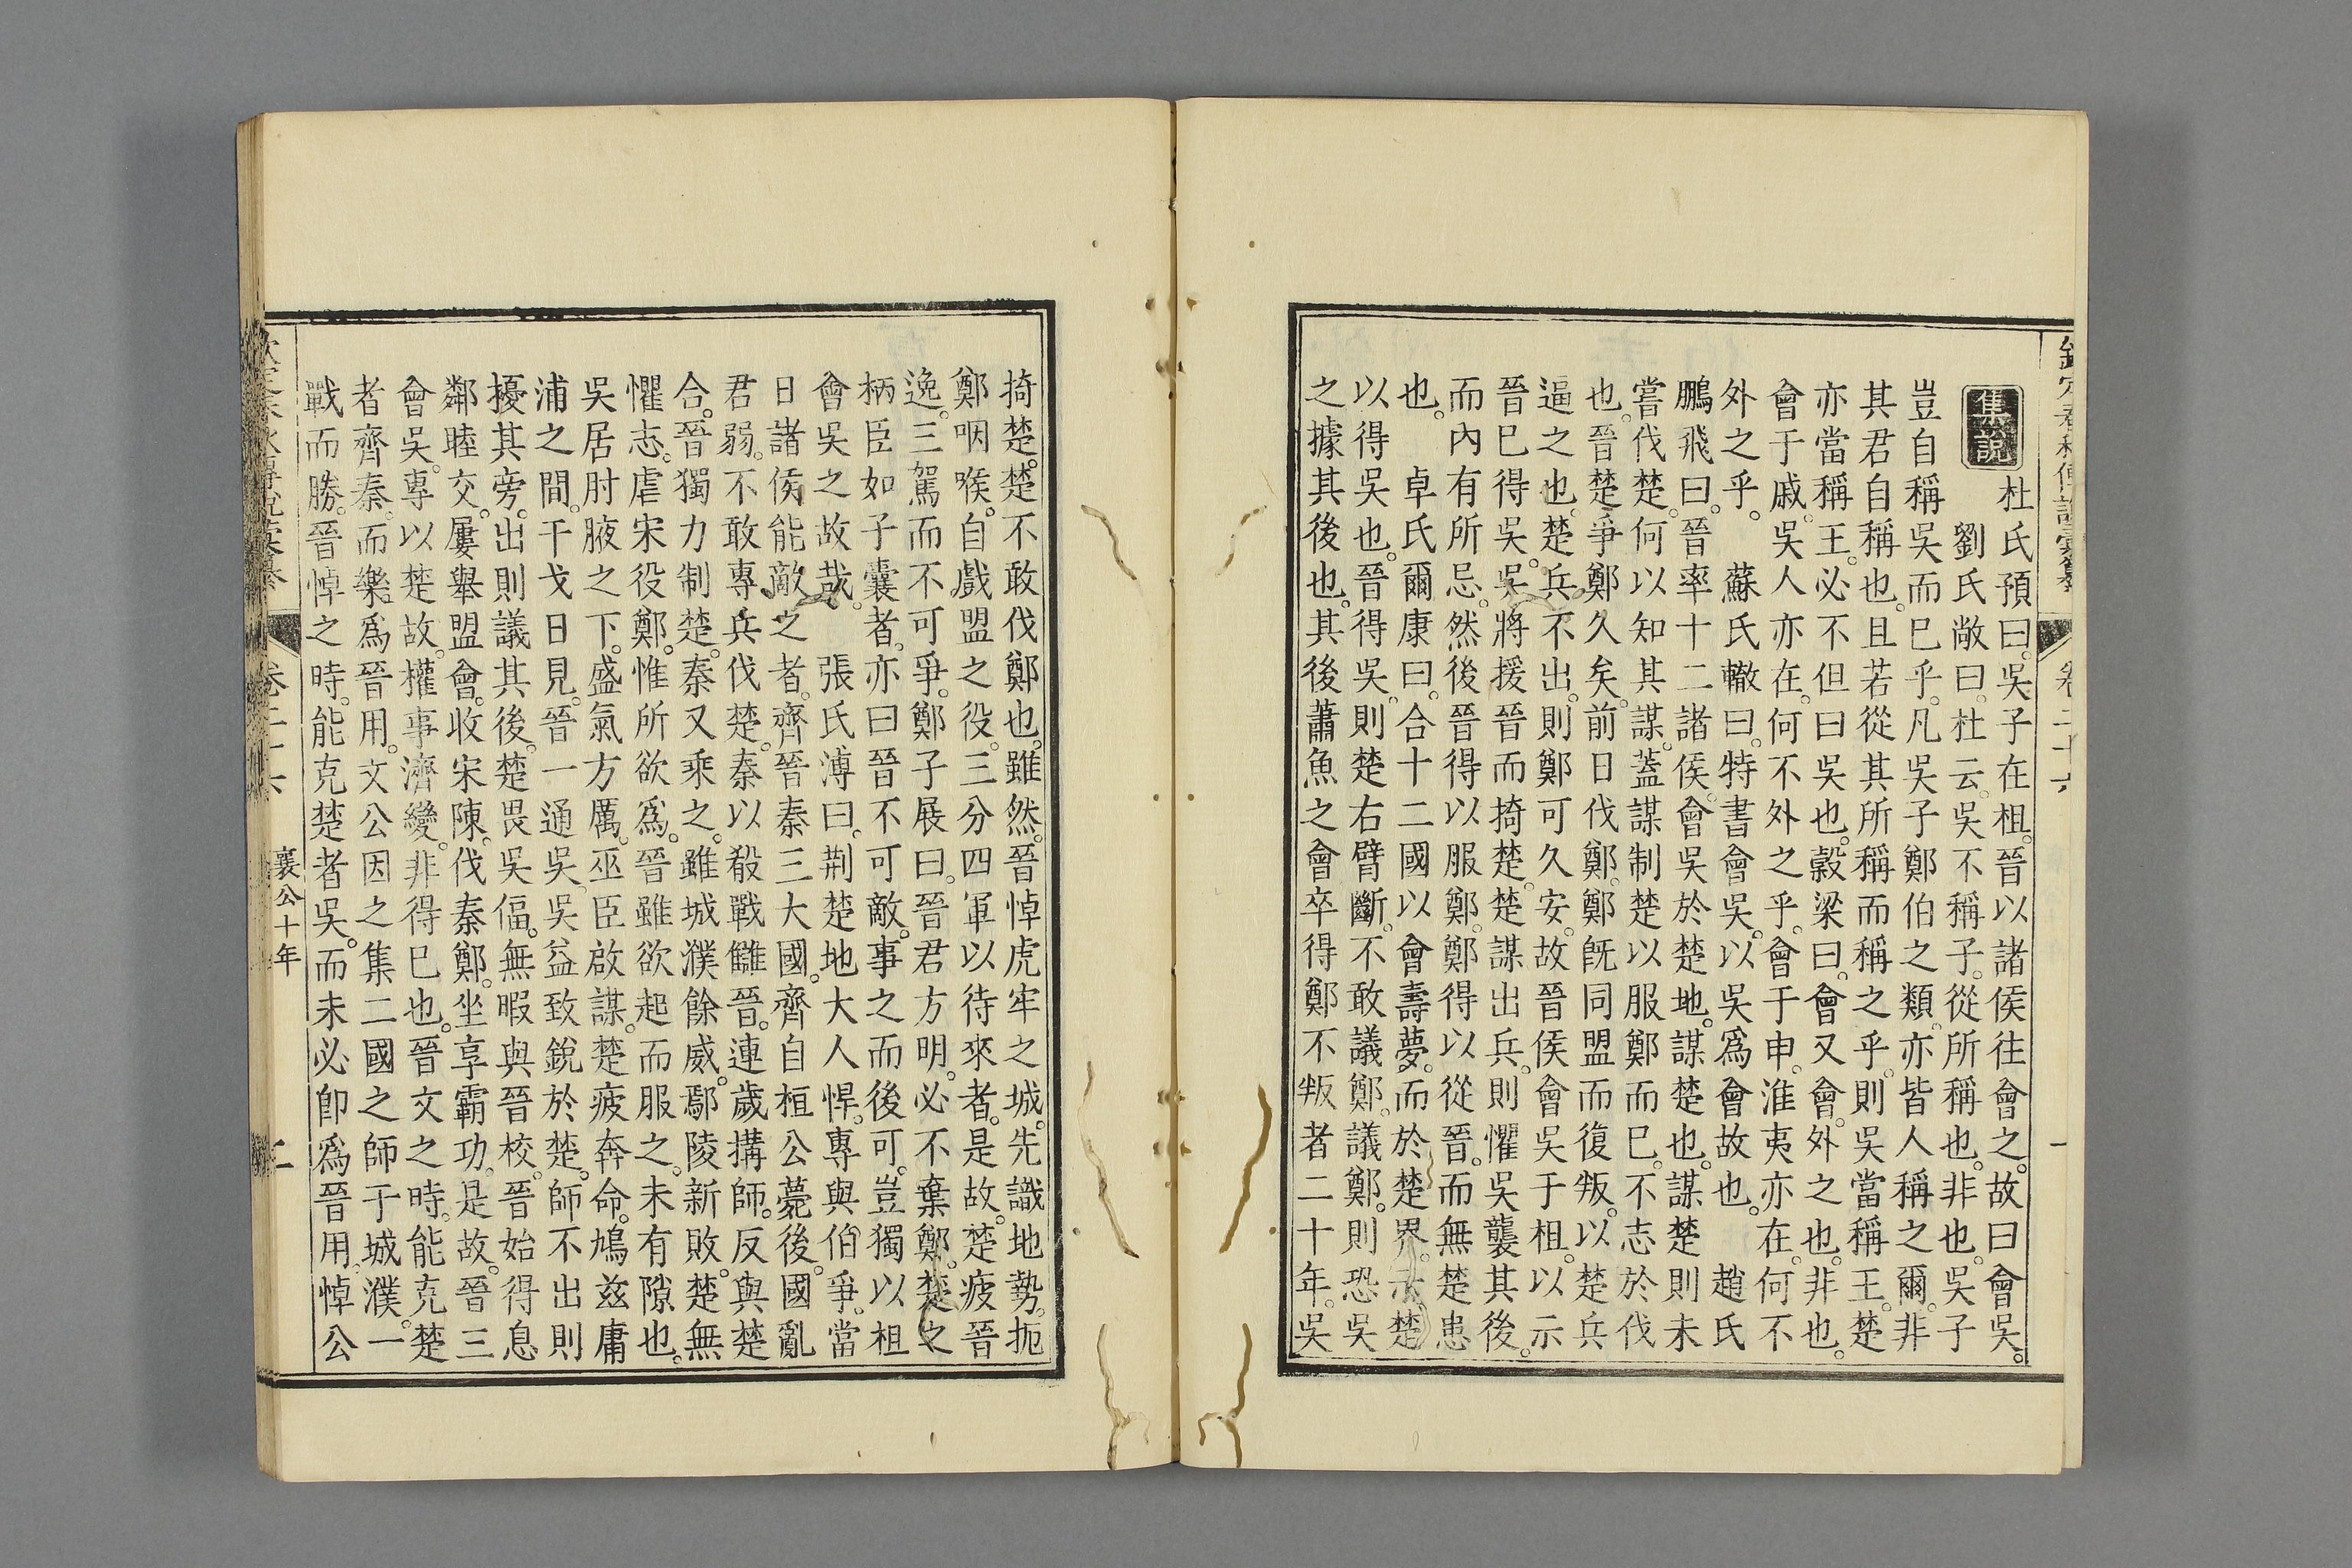 欽定春秋傳說彙纂 卷二十六 一
集說 杜氏預曰。吳子在柤。晉以諸侯往會之。故曰會吳。
劉氏敞曰。杜云。吳不稱子。從所稱也。非也。吳子
豈自稱吳而巳乎。凡吳子鄭伯之類。亦皆人稱之爾。非
其君自稱也。且若從其所稱而稱之乎。則吳當稱王。楚
亦當稱王。必不但曰吳也。榖梁曰。會又會。外之也。非也。
會于戚。吳人亦在。何不外之乎。會于申。淮夷亦在。何不
外之乎。 蘇氏轍曰。特書會吳。以吳爲會故也。 趙氏
鵬飛曰。晉率十二諸侯。會吳於楚地。謀楚也。謀楚則未
嘗伐楚。何以知其謀。蓋謀制楚以服鄭而巳。不志於伐
也。晉楚爭鄭久矣。前日伐鄭。鄭旣同盟而復叛。以楚兵
逼之也。楚兵不出。則鄭可久安。故晉侯會吳于柤。以示
晉巳得吳。吳將援晉而掎楚。楚謀出兵。則懼吳襲其後。
而內有所忌。然後晉得以服鄭。鄭得以從晉。而無楚患
也。 卓氏爾康曰。合十二國以會壽夢。而於楚界。示楚
以得吳也。晉得吳。則楚右臂斷。不敢議鄭。議鄭。則恐吳
之據其後也。其後蕭魚之會卒得鄭不叛者二十年。吳
掎楚。楚不敢伐鄭也。雖然。晉悼虎牢之城。先識地勢。扼
鄭咽喉。自戲盟之役。三分四軍以待來者。是故。楚疲晉
逸。三駕而不可爭。鄭子展曰。晉君方明。必不棄鄭。楚之
柄臣如子囊者。亦曰晉不可敵。事之而後可。豈獨以柤
會吳之故哉。 張氏溥曰。荆楚地大人悍。專與伯爭。當
日諸侯能敵之者。齊晉秦三大國。齊自桓公薨後。國亂
君弱。不敢專兵伐楚。秦以殽戰讎晉。連歲搆師。反與楚
合。晉獨力制楚。秦又乘之。雖城濮餘威。鄢陵新敗。楚無
懼志。虐宋役鄭。惟所欲爲。晉雖欲起而服之。未有隙也。
吳居肘腋之下。盛氣方厲。巫臣啟謀。楚疲奔命。鳩茲庸
浦之間。干戈日見。晉一通吳。吳益致銳於楚。師不出則
擾其旁。出則議其後。楚畏吳偪。無暇與晉校。晉始得息
鄰睦交。屢舉盟會。收宋陳。伐秦鄭。坐享霸功。是故。晉三
會吳。專以楚故。權事濟變。非得巳也。晉文之時。能克楚
者齊秦。而樂爲晉用。文公因之集二國之師于城濮。一
戰而勝。晉悼之時。能克楚者吳。而未必卽爲晉用。悼公
襄公十年